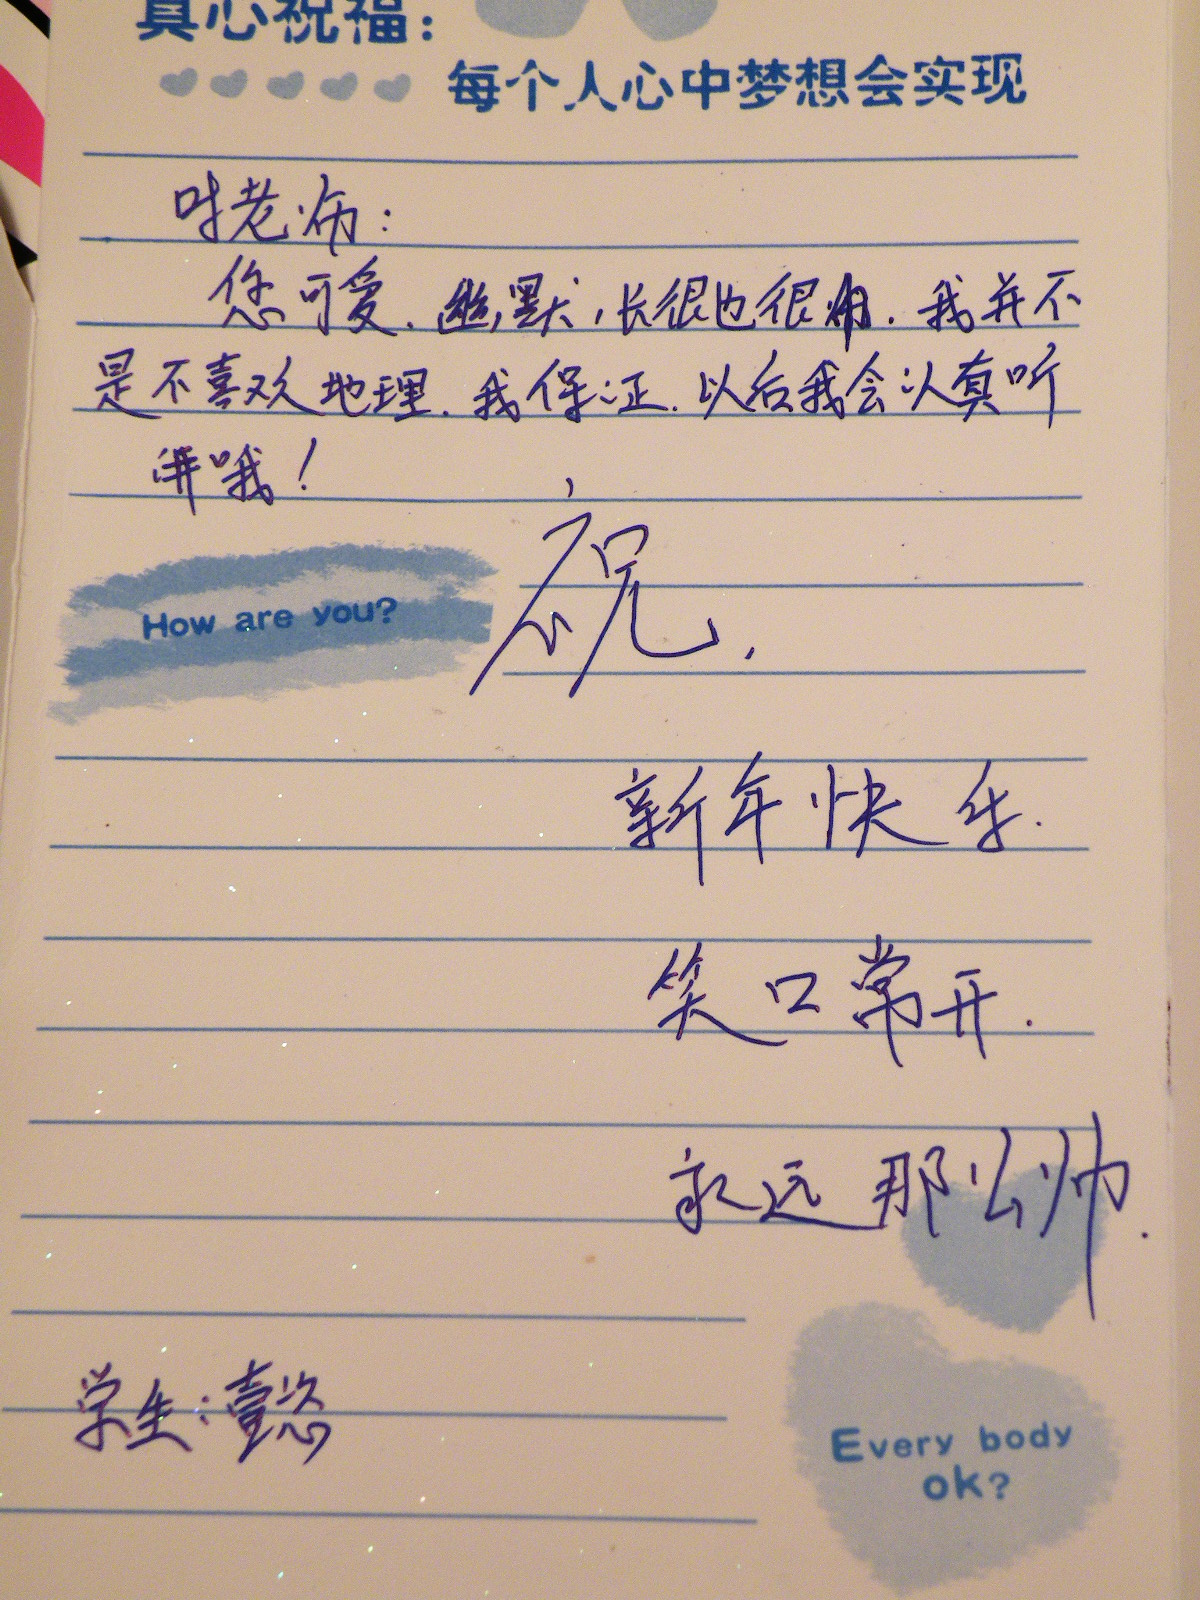 真心祝福：
每个人心中梦想会实现
叶老师：
您可爱.幽默,长很也很帅.我并不
是不喜欢地理.我保证.以后我会认真听
讲哦！
How are you?
祝,
新年快乐.
笑口常开.
永远那么帅.
学生：懿
Every body
ok?